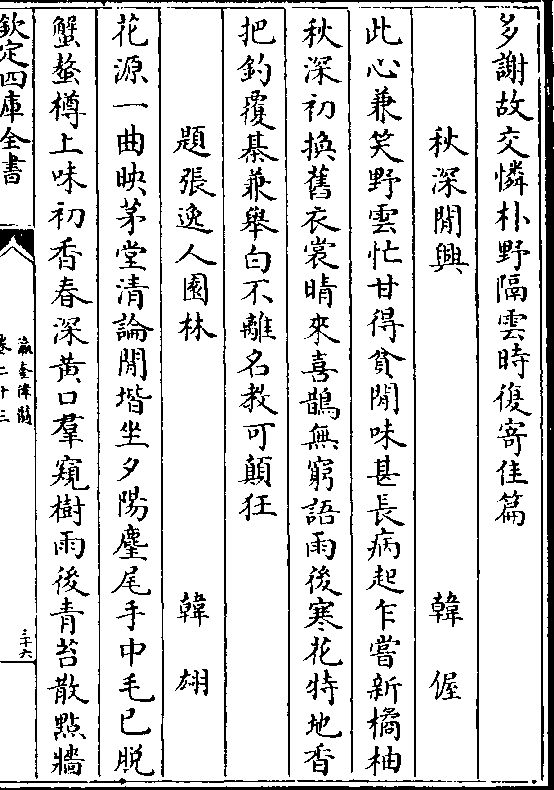 多謝故交憐朴野隔雲時復寄佳篇
秋深閒興　韓　偓
此心兼笑野雲忙甘得貧閒味甚長病起乍嘗新橘柚
秋深初換舊衣裳晴來喜鵲無窮語雨後寒花特地香
把釣覆棊兼舉白不離名教可顛狂
題張逸人園林　韓　翃
花源一曲映茅堂清論閒堦坐夕陽麈尾手中毛已脫
蟹螯樽上味初香春深黃口羣窺樹雨後青苔散點牆
欽定四庫全書
瀛奎律髓
卷二十三
三十六